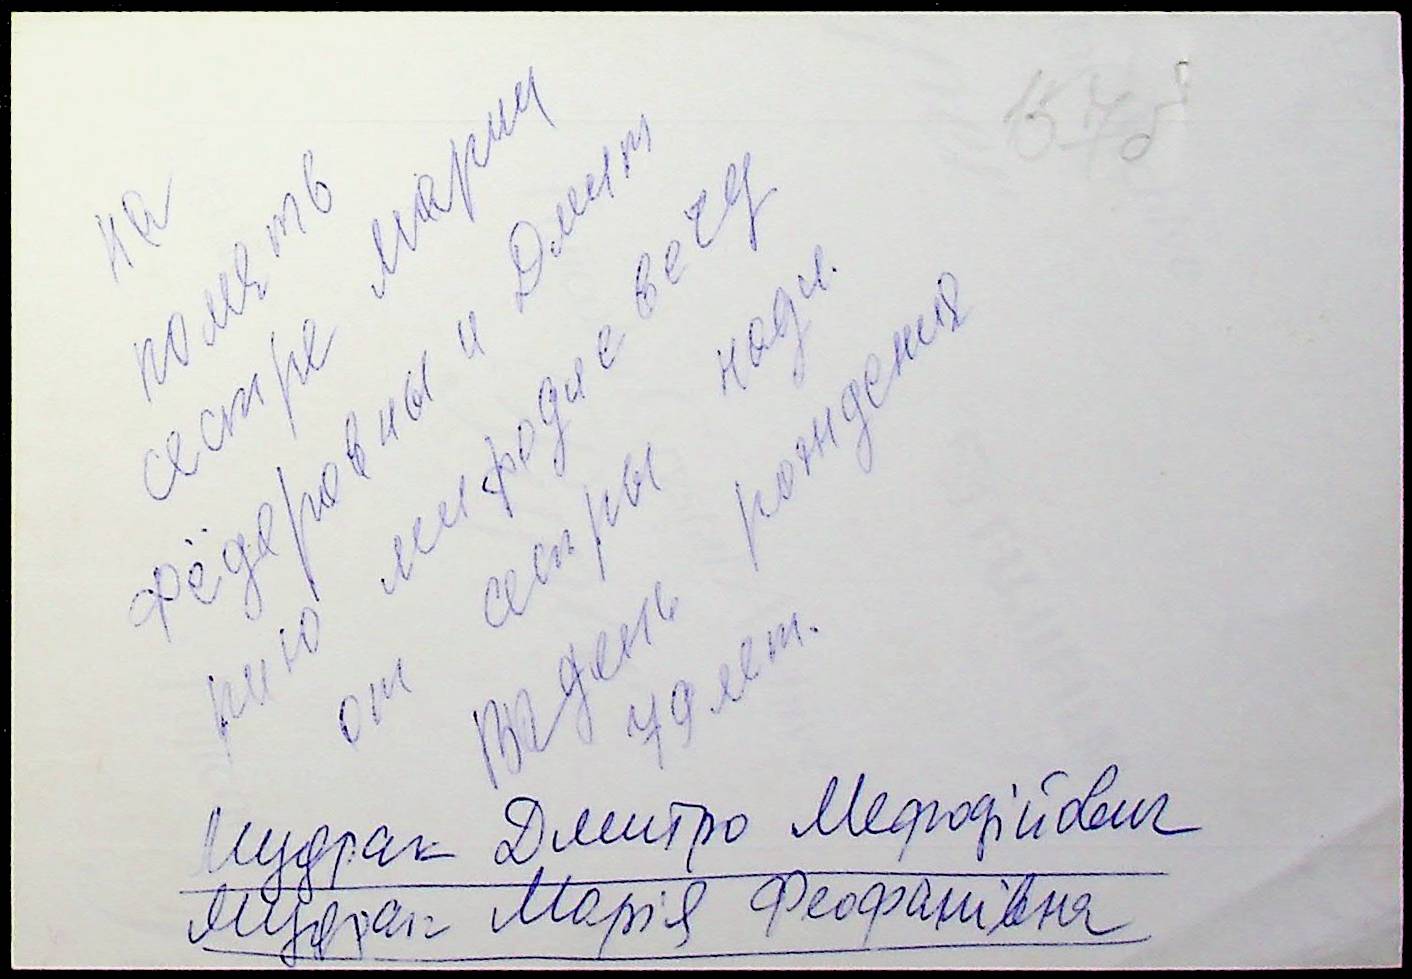 на
помять
сестре марии
Фёдеровны и Дмит
рию мифодиевечу
от сестры нади.
Вадень рождения
79 лет.
Мудрак Дмитро Мефодійович
Мудрак Марія Феофанівна